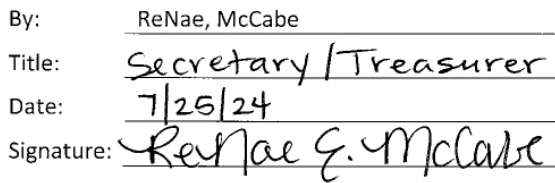 By: ReNae, McCabe
Title: Secretary/Treasurer
Date: 7/25/24
Signature: ReNae E. McCabe